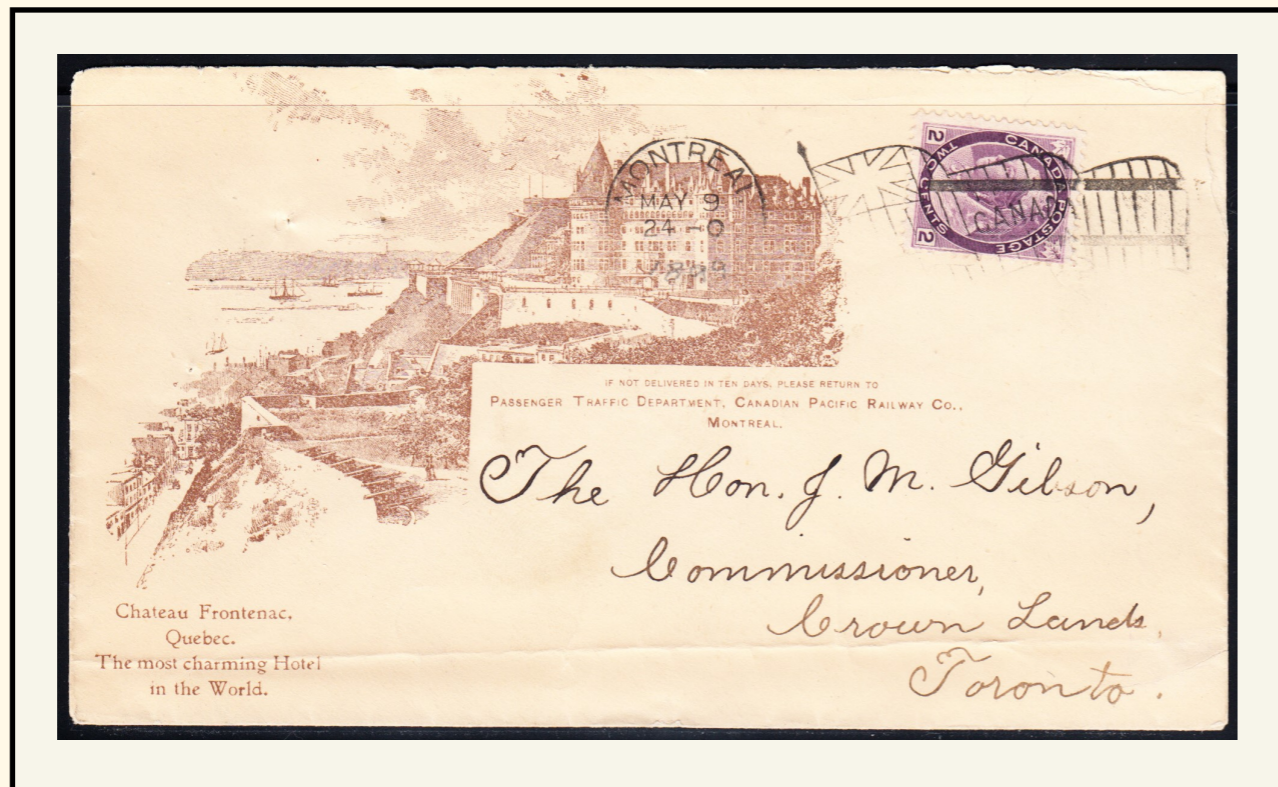 MONTREAL
MAY 9
24-0
CANADA POSTAGE
TWO CENTS
2
2
CANADA
IF NOT DELIVERED IN TEN DAYS, PLEASE RETURN TO
PASSENGER TRAFFIC DEPARTMENT, CANADIAN PACIFIC RAILWAY CO.,
MONTREAL.
The Hon. J. M. Gibson,
Commissioner,
Crown Lands,
Toronto.
Chateau Frontenac,
Quebec.
The most charming Hotel
in the World.